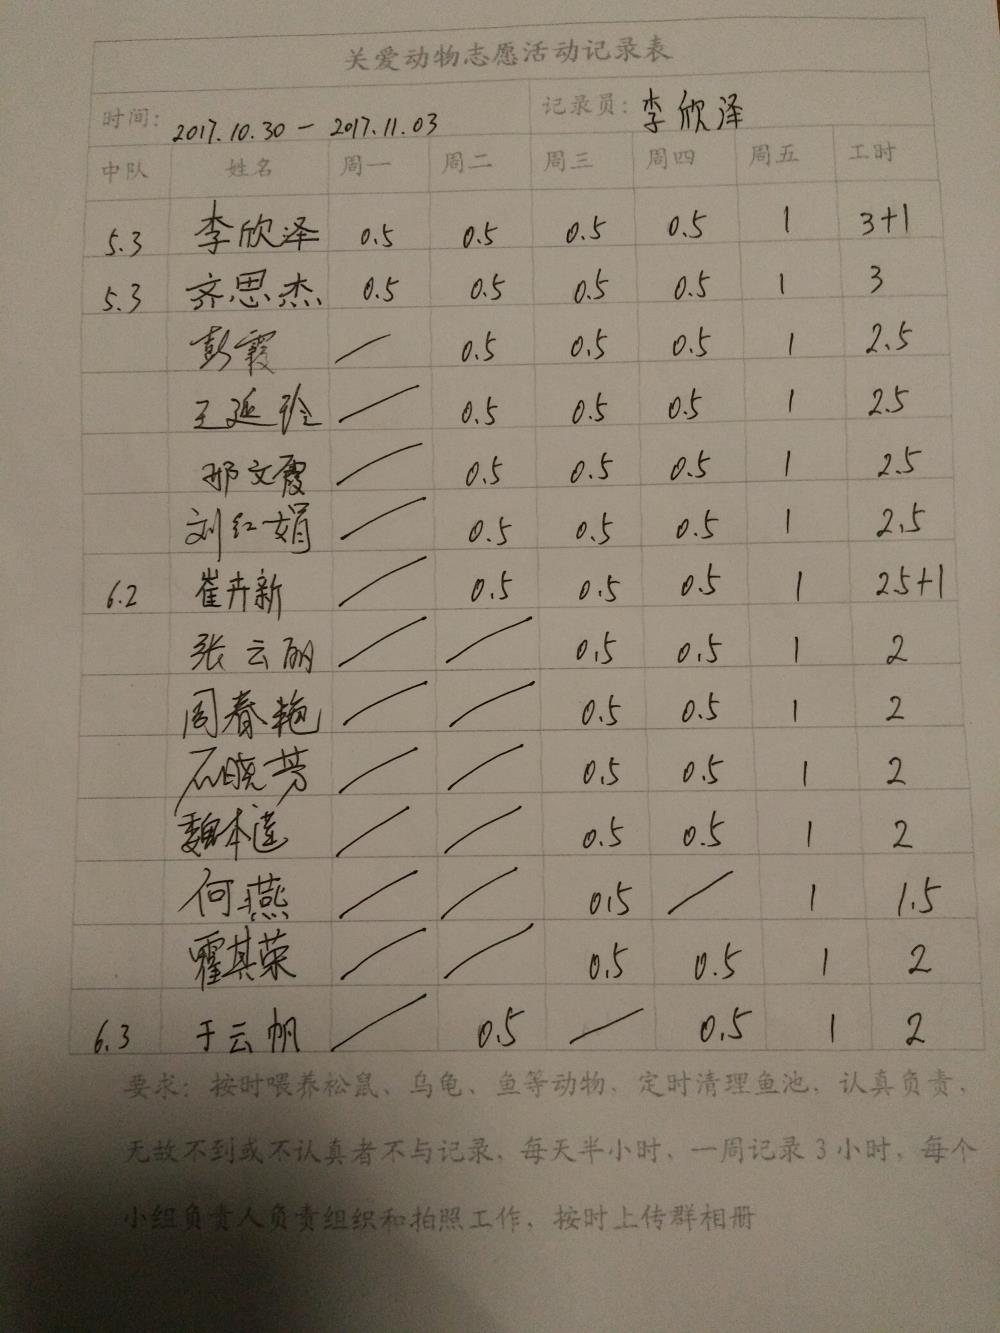 关爱动物志愿活动记录表
时间: 2017.10.30 — 2017.11.03 记录员: 李欣泽
中队 姓名 周一 周二 周三 周四 周五 工时
5.3 李欣泽 0.5 0.5 0.5 0.5 1 3+1
5.3 齐思杰 0.5 0.5 0.5 0.5 1 3
彭霞 — 0.5 0.5 0.5 1 2.5
王延玲 — 0.5 0.5 0.5 1 2.5
邢文霞 — 0.5 0.5 0.5 1 2.5
刘红娟 — 0.5 0.5 0.5 1 2.5
6.2 崔卉新 — 0.5 0.5 0.5 1 2.5+1
张云丽 — — 0.5 0.5 1 2
周春艳 — — 0.5 0.5 1 2
石晓芳 — — 0.5 0.5 1 2
魏本莲 — — 0.5 0.5 1 2
何燕 — — 0.5 — 1 1.5
霍其荣 — — 0.5 0.5 1 2
6.3 于云帆 — 0.5 — 0.5 1 2
要求: 按时喂养松鼠、乌龟、鱼等动物、定时清理鱼池，认真负责，
无故不到或不认真者不与记录，每天半小时，一周记录3小时，每个
小组负责人负责组织和拍照工作，按时上传群相册